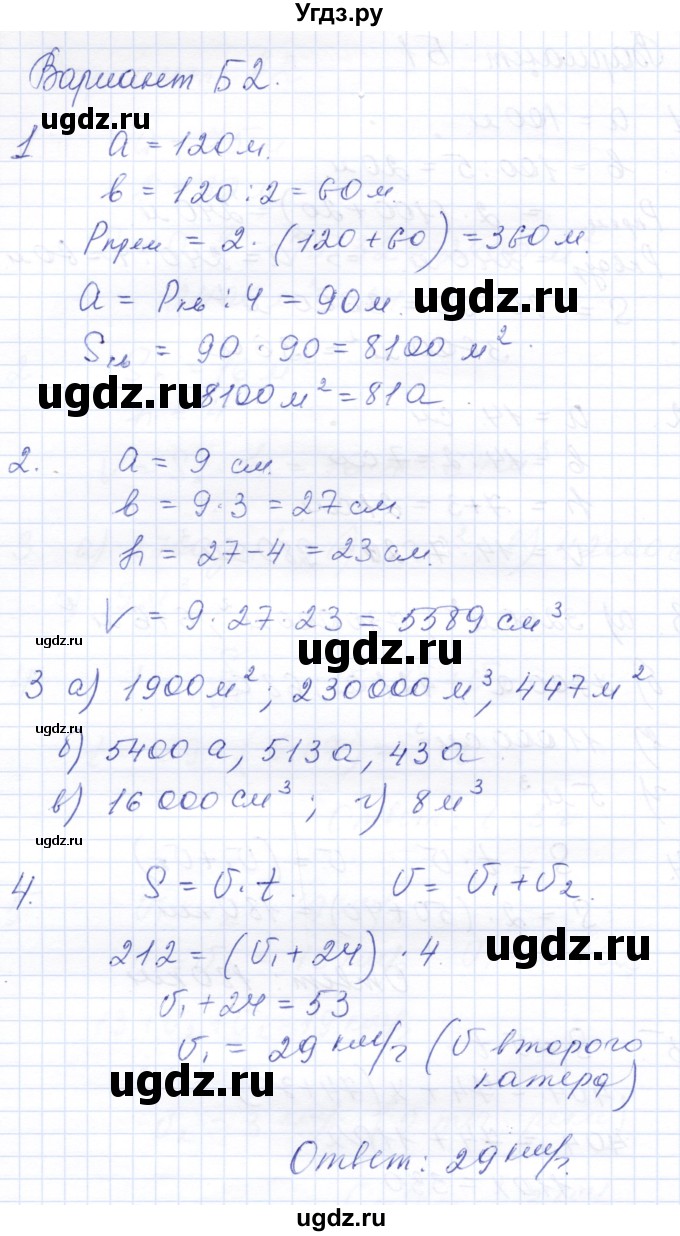 Угдз.ру
Вариант Б2.
ugdz.ru
1 a = 120 м.
в = 120 : 2 = 60 м.
Pпрям = 2 · (120 + 60) = 360 м.
a = Pкв : 4 = 90 м.
ugdz.ru
Sкв = 90 · 90 = 8100 м²
ugdz.ru 8100 м² = 81 а.
2. a = 9 см.
в = 9 · 3 = 27 см.
h = 27 – 4 = 23 см.
V = 9 · 27 · 23 = 5589 см³
ugdz.ru ugdz.ru
3 а) 1900 м²; 230000 м³, 447 м²
ugdz.ru
б) 5400 а, 513 а, 43 а
в) 16 000 см³; г) 8 м³
ugdz.ru
4. S = υ · t. υ = υ₁ + υ₂
212 = (υ₁ + 24) · 4
ugdz.ru
υ₁ + 24 = 53
υ₁ = 29 км/ч (υ второго
катера)
ugdz.ru
Ответ: 29 км/ч.
ugdz.ru